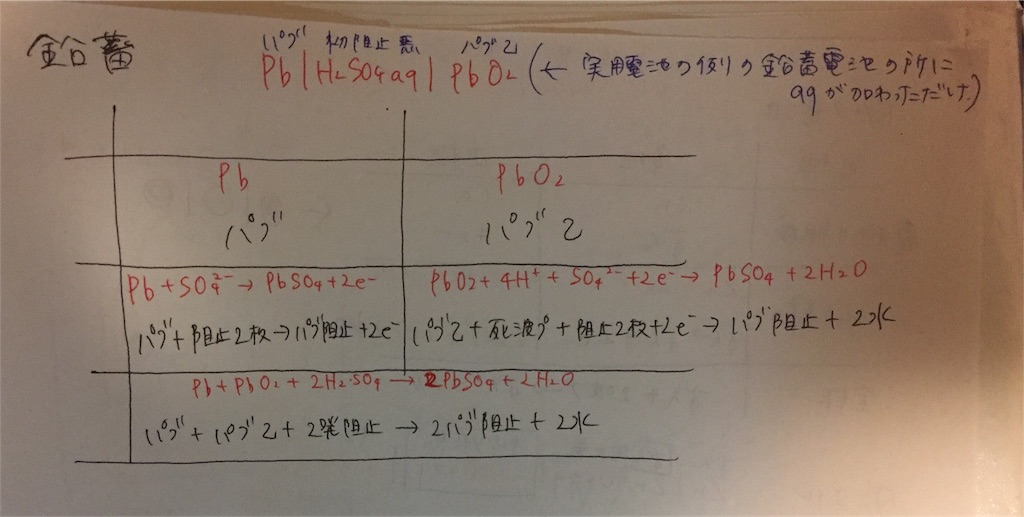 鉛蓄
パブ 初阻止悪 パブ乙
Pb | H₂SO₄aq | PbO₂ (← 実用電池の例の鉛蓄電池の所に
aqが加わっただけ)
Pb PbO₂
パブ パブ乙
Pb+SO₄²⁻→PbSO₄+2e⁻ PbO₂+4H⁺+SO₄²⁻+2e⁻→PbSO₄+2H₂O
パブ+阻止2枚→パブ阻止+2e⁻ パブ乙+死波プ+阻止2枚+2e⁻→パブ阻止+2水
Pb+PbO₂+2H₂SO₄→2PbSO₄+2H₂O
パブ+パブ乙+2発阻止→2パブ阻止+2水